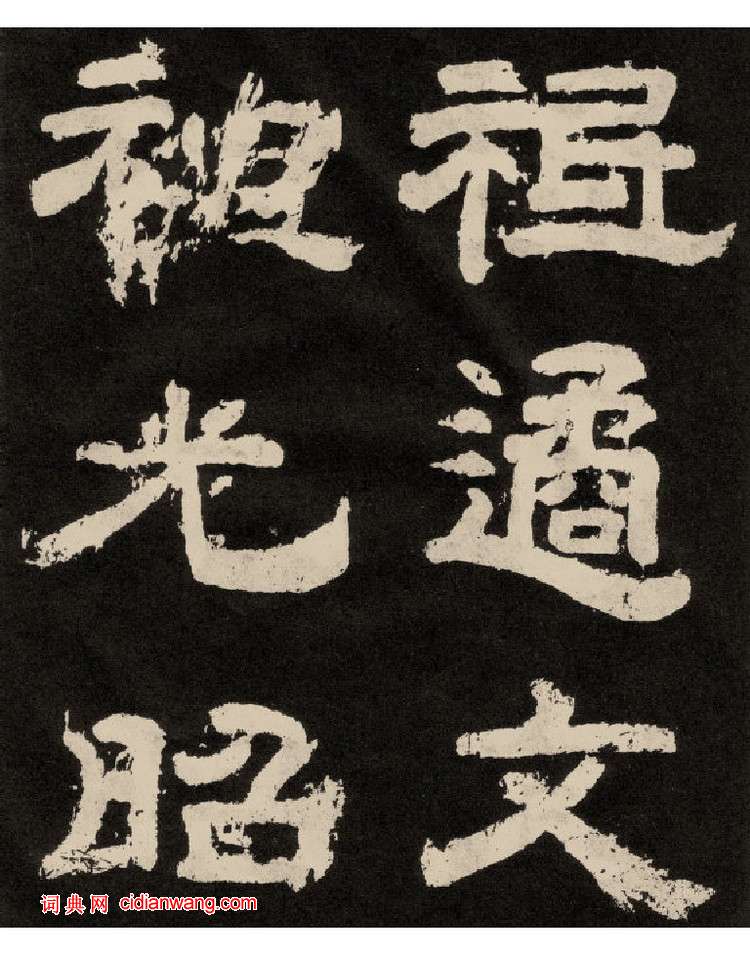 祖遹文
祖光昭
词典网 cidianwang.com